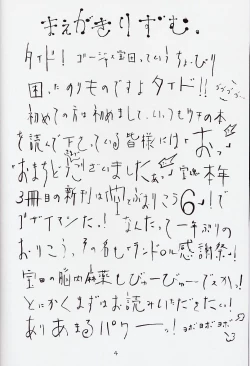 まえがきりずむ。
タイド！ゴージャス宝田っていうちょっぴり
困ったのりものですよタイド!!
初めての方は初めまして、いつもワチの本
を読んで下さっている皆様には「おっ
「おまちどうございましたぁっ」宝田本年
3冊目の新刊は「
ござイマシたっ！なんたって一年ぶりの
おりこう、その名も 感謝祭っ！
宝田の脳内麻薬しびゅーびゅーでえかっ！
とにかくまずはお読みいただきたい！
ありあまるパワーーっ！
4